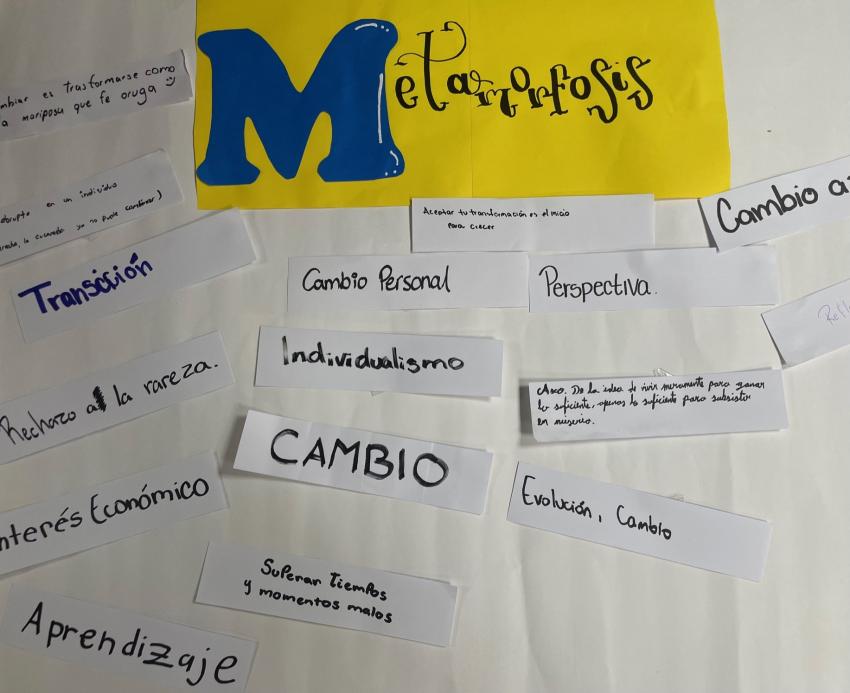 Metamorfosis
mbiar es trasformarse como
a mariposa que fe oruga
en un individuo
ya no puede cambiar)
Transición
Aceptar tu transformación es el inicio
para crecer
Cambio a
Cambio Personal
Perspectiva.
Refl
Individualismo
Rechazo a la rareza.
Asco. De la idea de vivir meramente para ganar
lo suficiente, apenas lo suficiente para subsistir
en miseria.
CAMBIO
nterés Económico
Evolución, Cambio
Superar Tiempos
y momentos malos
Aprendizaje